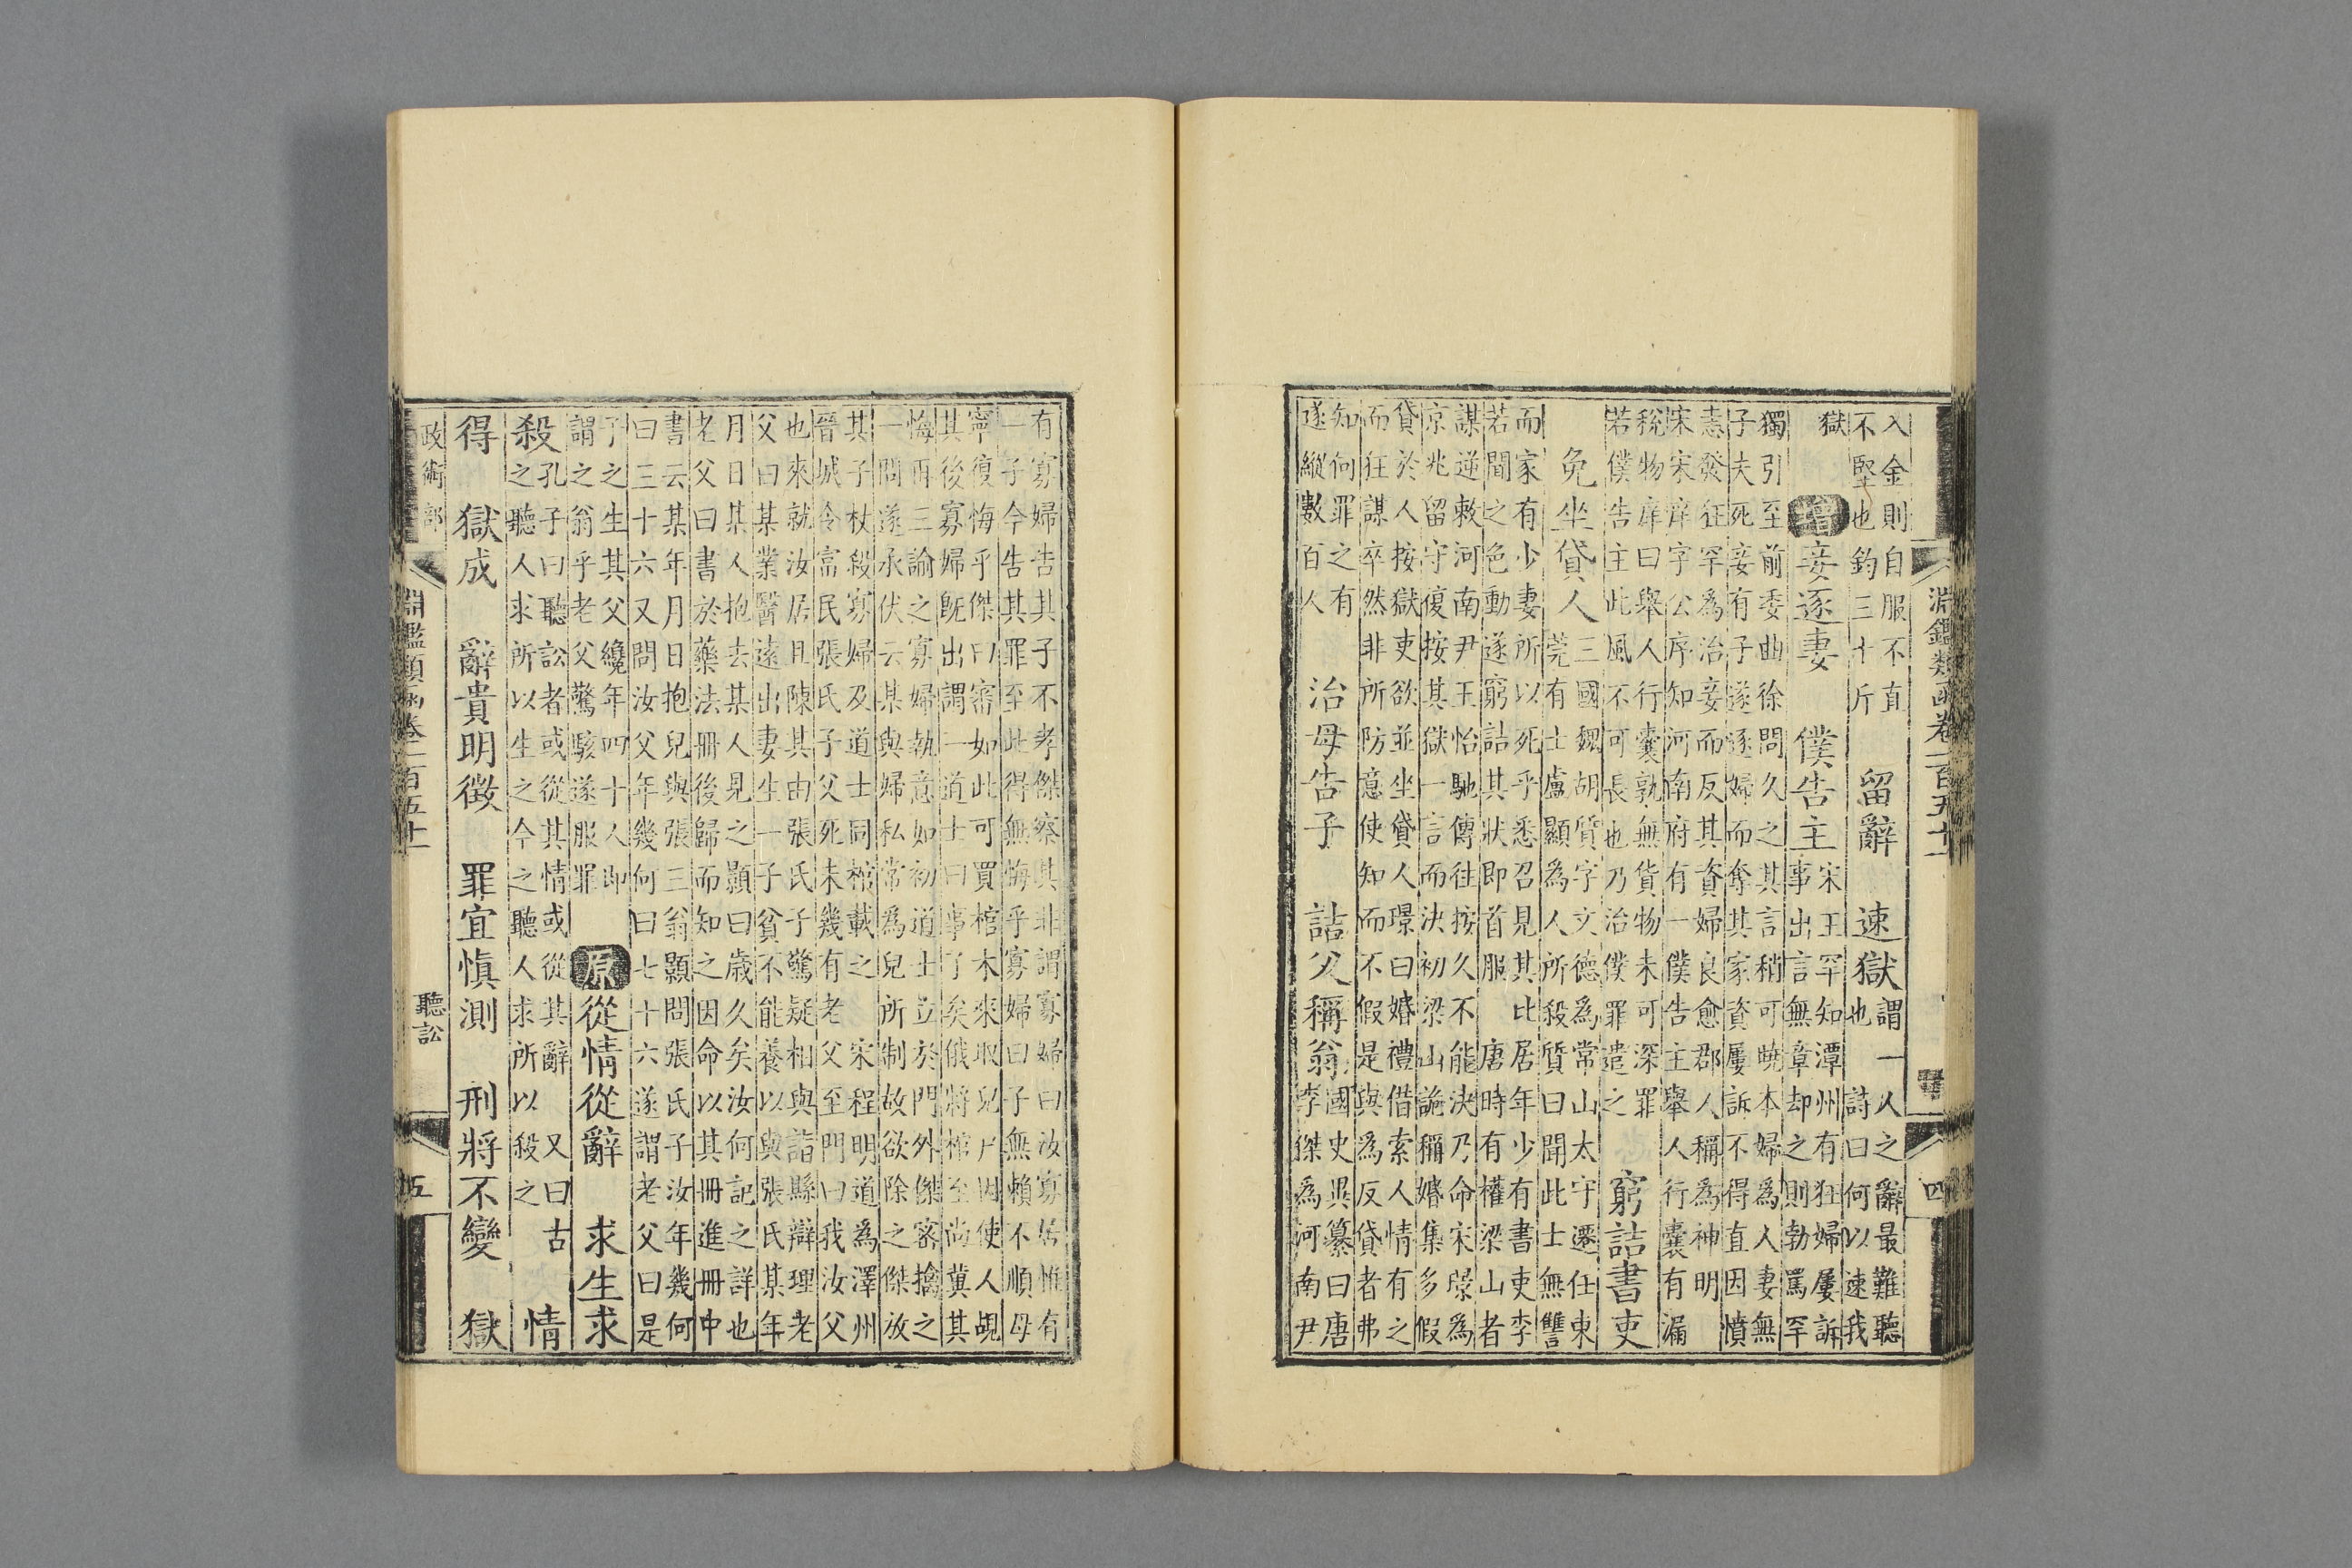 淵鑑類函卷一百五十一
四
入金則自服不直
不堅也鈞三十斤
留辭　速獄
謂一人之辭最難聽
也　詩曰何以速我
獄
增　妾逐妻　僕告主
宋王罕知潭州有狂婦屢訴
事出言無章却之則勃罵罕
獨引至前委曲徐問久之其言稍可曉本婦為人妻無
子夫死妾有子遂逐婦而奪其家資屢訴不得直因憤
恚發狂罕為治妾而反其資婦良愈郡人稱為神明
宋宋庠字公序知河南府有一僕告主舉人行囊有漏
稅物庠曰舉人行囊孰無貨物未可深罪
若僕告主此風不可長也乃治僕罪遣之
窮詰書吏
免坐貸人
三國魏胡質字文德為常山太守遷任東
莞有士盧顯為人所殺質曰聞此士無讐
而家有少妻所以死乎悉召見其比居年少有書吏李
若閒之色動遂窮詰其狀即首服　唐時有權梁山者
謀逆敕河南尹王怡馳傳往按久不能決乃命宋璟為
京兆留守復按其獄一言而決初梁山詭稱婚集多假
貸於人按獄吏欲並坐貸人璟曰婚禮借索人情有之
而狂謀卒然非所防意使知而不假是與為反貸者弗
知何罪之有
遂縱數百人
治母告子　詰父稱翁
國史異纂曰唐
李傑為河南尹
有寡婦告其子不孝傑察其非謂寡婦曰汝寡居惟有
一子今告其罪至此得無悔乎寡婦曰子無賴不順母
寧復悔乎傑曰審如此可買棺木來取兒尸因使人覘
其後寡婦既出謂一道士曰事了矣俄將棺至尚冀其
悔再三諭之寡婦執意如初道士立於門外傑密擒之
一問遂承伏云某與婦私常為兒所制故欲除之傑放
其子杖殺寡婦及道士同棺載之　宋程明道為澤州
晉城令富民張氏子父死未幾有老父至門曰我汝父
也來就汝居且陳其由張氏子驚疑相與詣縣辯理老
父曰某業醫遠出妻生一子貧不能養以與張氏某年
月日某人抱去某人見之顥曰歲久矣汝何記之詳也
老父曰書於藥法冊後歸而知之因命以其冊進冊中
書云某年月日抱兒與張三翁顥問張氏子汝年幾何
曰三十六又問汝父年幾何曰七十六遂謂老父曰是
子之生其父纔年四十人即
謂之翁乎老父驚駭遂服罪
原　從情從辭　求生求
殺
孔子曰聽訟者或從其情或從其辭　又曰古
之聽人求所以生之今之聽人求所以殺之
情
得　獄成　辭貴明徵　罪宜慎測　刑將不變　獄
政術部
淵鑑類函卷二百五十一
聽訟
五